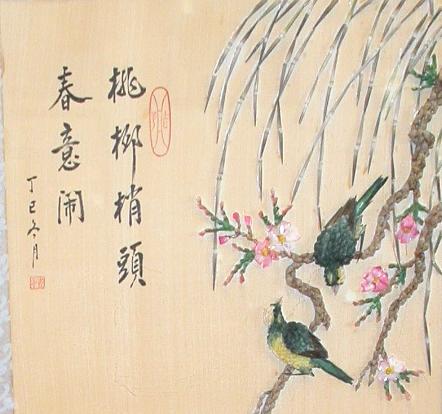 桃柳梢頭
春意闹
丁巳冬月